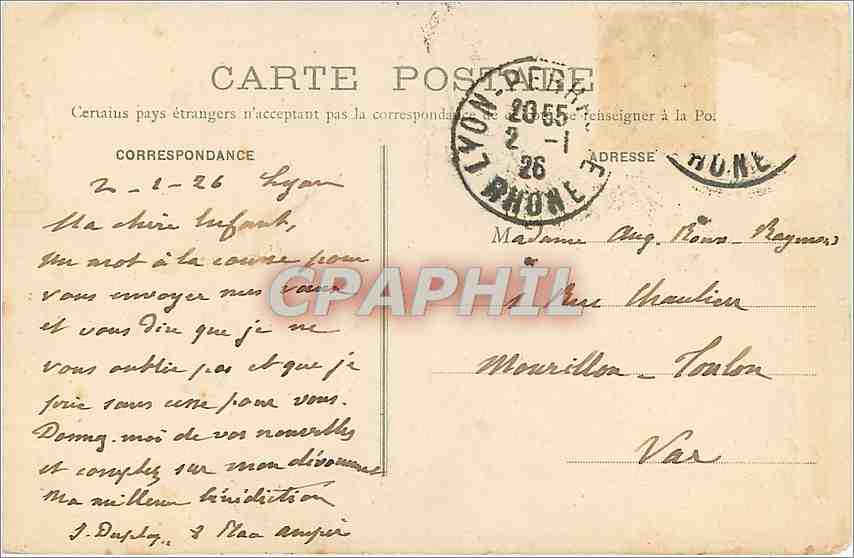 CARTE POSTALE
Certains pays étrangers n'acceptant pas la correspondance de ce côté, se renseigner à la Po.
CORRESPONDANCE
ADRESSE
LYON-PERRACHE
20 55
2 -1
26
RHONE
RHONE
2-1-26 Lyon
Ma chère Enfant,
Un mot à la course pour
vous envoyer mes vœux
et vous dire que je ne
vous oublie pas et que je
prie sans cesse pour vous.
Donnez-moi de vos nouvelles
et comptez sur mon dévouement
Ma meilleure bénédiction
Place Ampère
Madame Aug. Roux-Raymond
Rue Chaulier
Mourillon - Toulon
Var
CPAPHIL